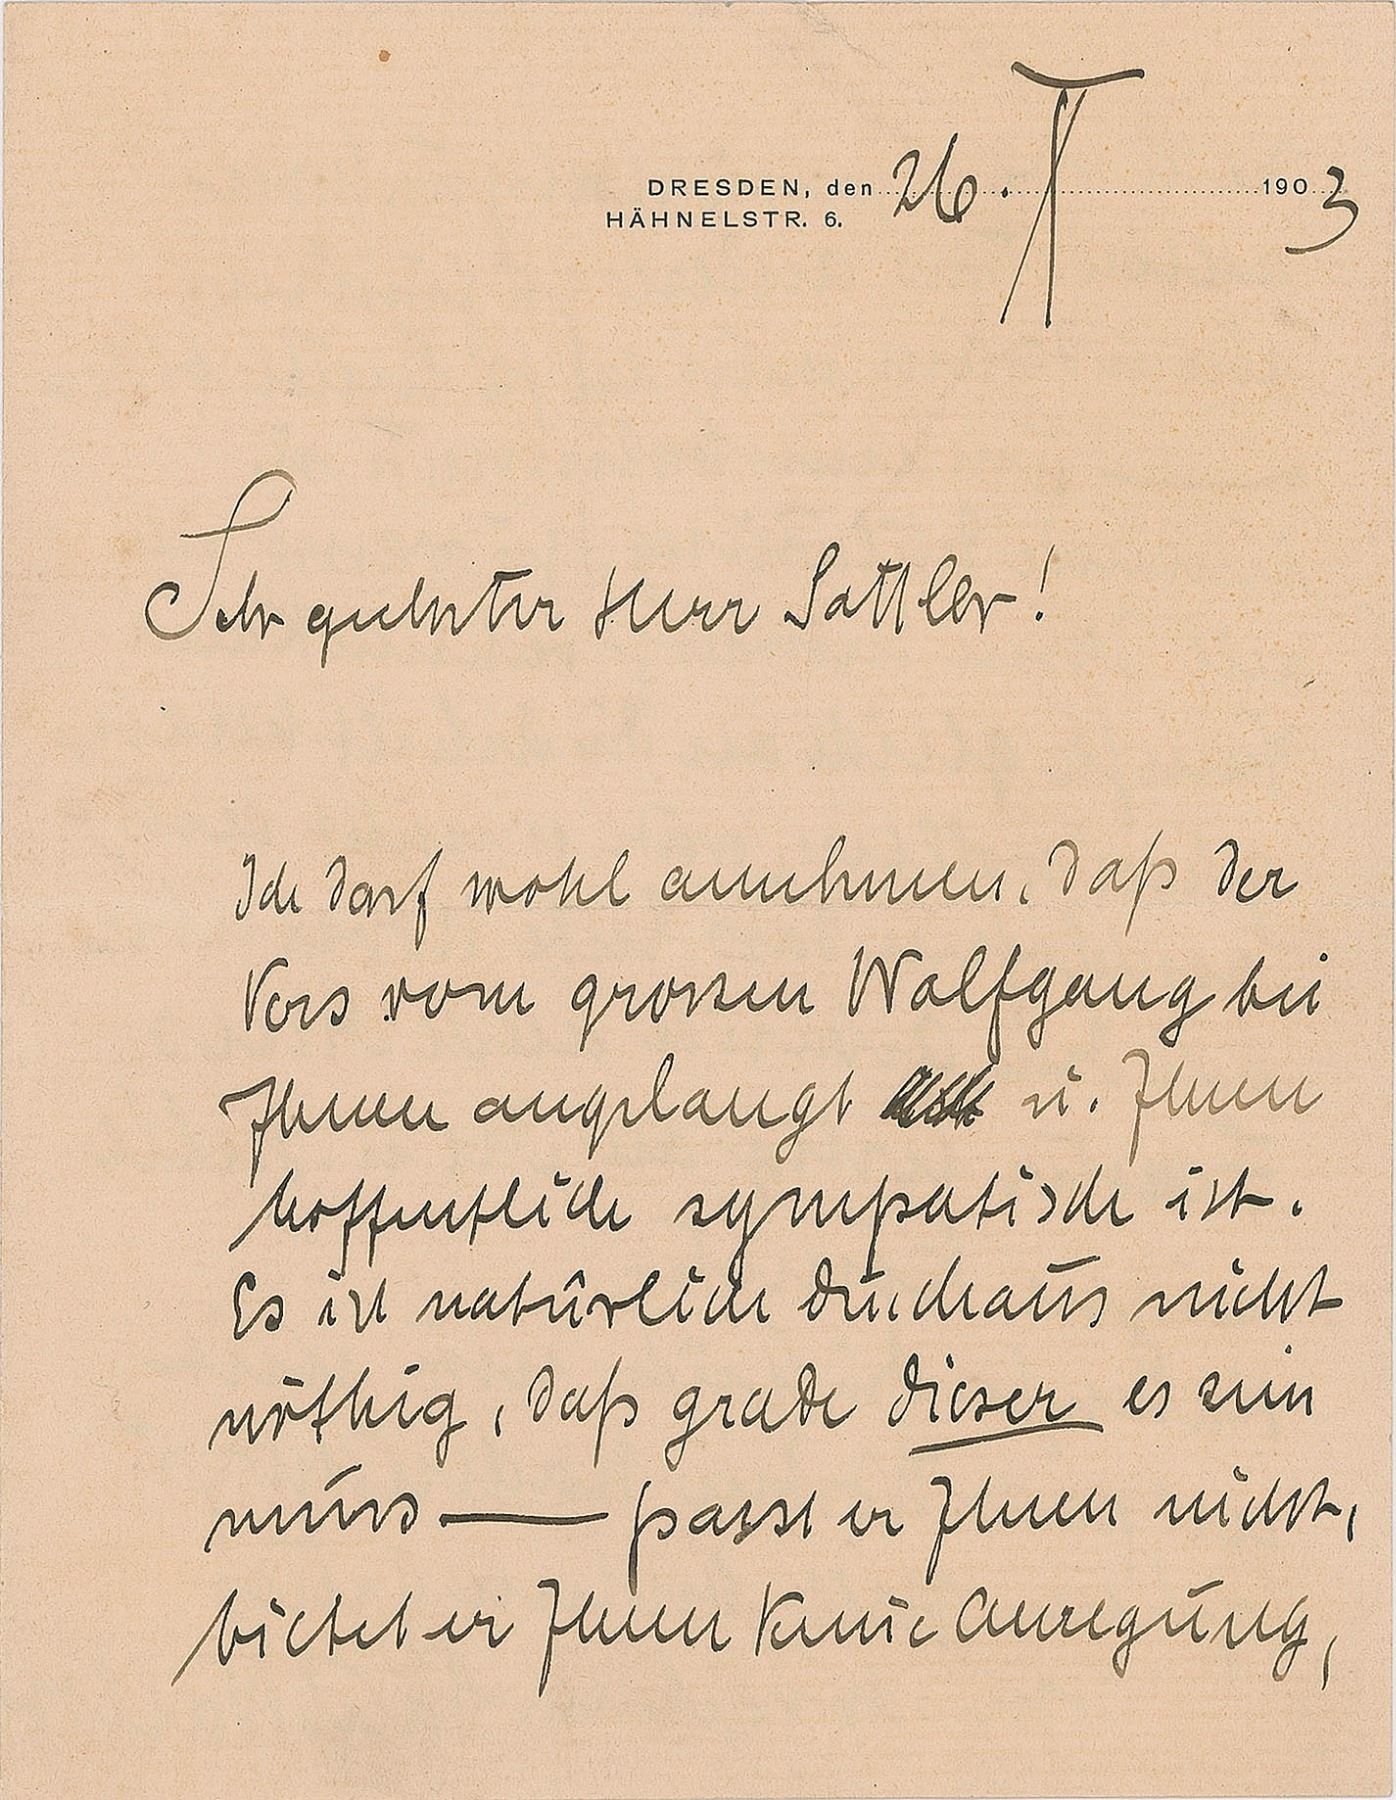 DRESDEN, den 26. II 1903
HÄHNELSTR. 6.
Sehr geehrter Herr Sattler!
Ich darf wohl annehmen, daß der
Vers vom grossen Wolfgang bei
Ihnen angelangt u. Ihnen
hoffentlich sympatisch ist.
Es ist natürlich durchaus nicht
nöthig, daß grade dieser es sein
muss — passt er Ihnen nicht,
bietet er Ihnen keine Anregung,